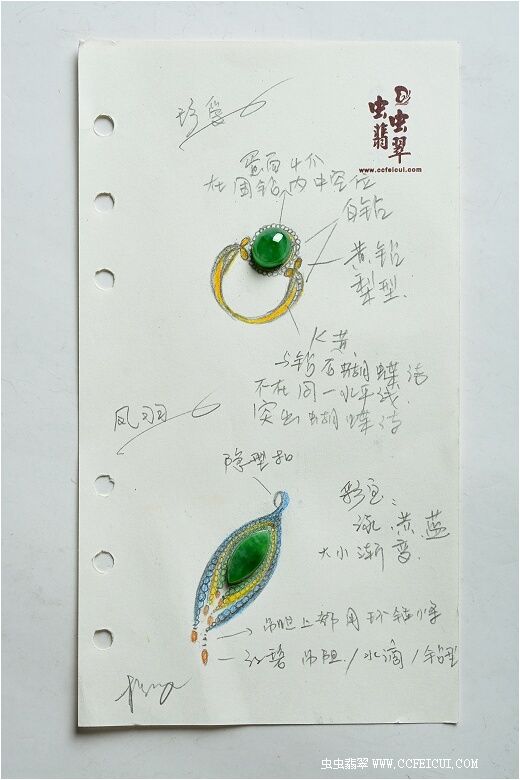 珍爱
虫虫翡翠
www.ccfeicui.com
蛋面
在围钻内中空位
白钻
黄钻
梨型.
K黄
与钻石蝴蝶结
不在同一水平线.
突出蝴蝶结
凤羽
隐型扣
彩宝:
绿.黄.蓝
大小渐变.
吊坠上部用
红碧 吊坠/水滴/
虫虫翡翠 WWW.CCFEICUI.COM